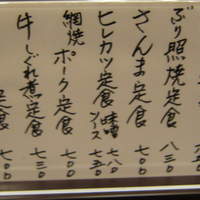 ぶり照焼定食 八三〇
さんま定食 七〇〇
ヒレカツ定食 味噌 七八〇
ソース 七五〇
網焼ポーク定食 七〇〇
牛しぐれ煮定食 七三〇
定食 七〇〇